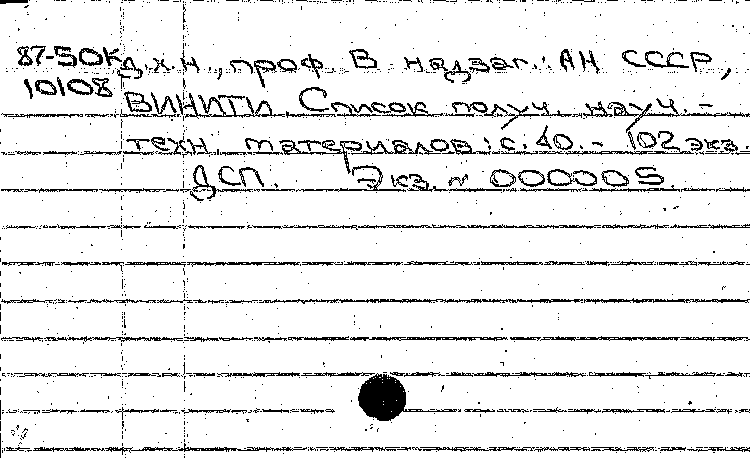 87-50К д.х.н., проф. В надзаг.: АН СССР,
10108 ВИНИТИ. Список получ. науч.-
техн. материалов: с. 40. - 102 экз.
ДСП. Экз. № 000005.